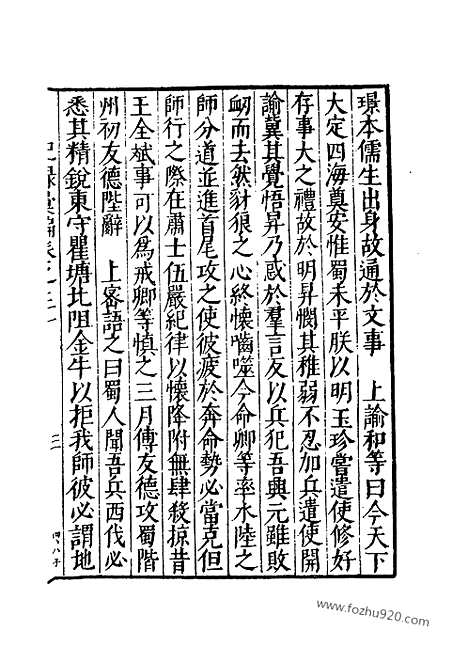 璟本儒生出身故通於文事　上諭和等曰今天下
大定四海奠安惟蜀未平朕以明玉珍嘗遣使修好
存事大之禮故於明昇憫其稚弱不忍加兵遣使開
諭冀其覺悟昇乃惑於羣言反以兵犯吾興元雖敗
衂而去然豺狼之心終懷嚙噬今命卿等率水陸之
師分道並進首尾攻之使彼疲於奔命勢必當克但
師行之際在肅士伍嚴紀律以懷降附無肆殺掠昔
王全斌事可以為戒卿等慎之三月傅友德攻蜀階
州初友德陛辭　上密語之曰蜀人聞吾兵西伐必
悉其精銳東守瞿塘北阻金牛以拒我師彼必謂地
三
www.fozhu920.com